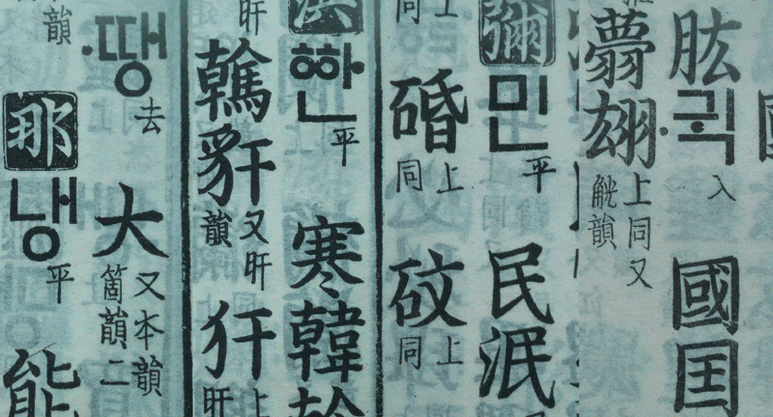 肱 ·귁 入 國 囯
翃 上同又 觥韻
彌 민 平 民 泯
同上 碈 同上 砇 同上
洪 한 平 寒 韓
旰 鶾 豻 又旰韻 犴 上旰
·땡 去 大 又本韻 箇韻二
韻 那 냉 平 能